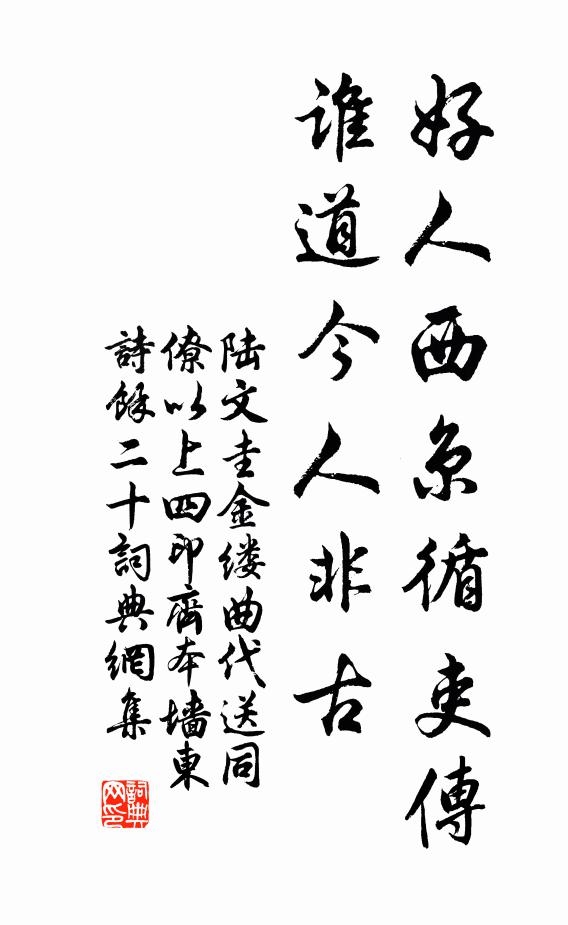 好人西京循吏傳
誰道今人非古
陆文圭金缕曲代送同
僚以上四印齋本墻東
詩餘二十詞典網集
詞典
网印